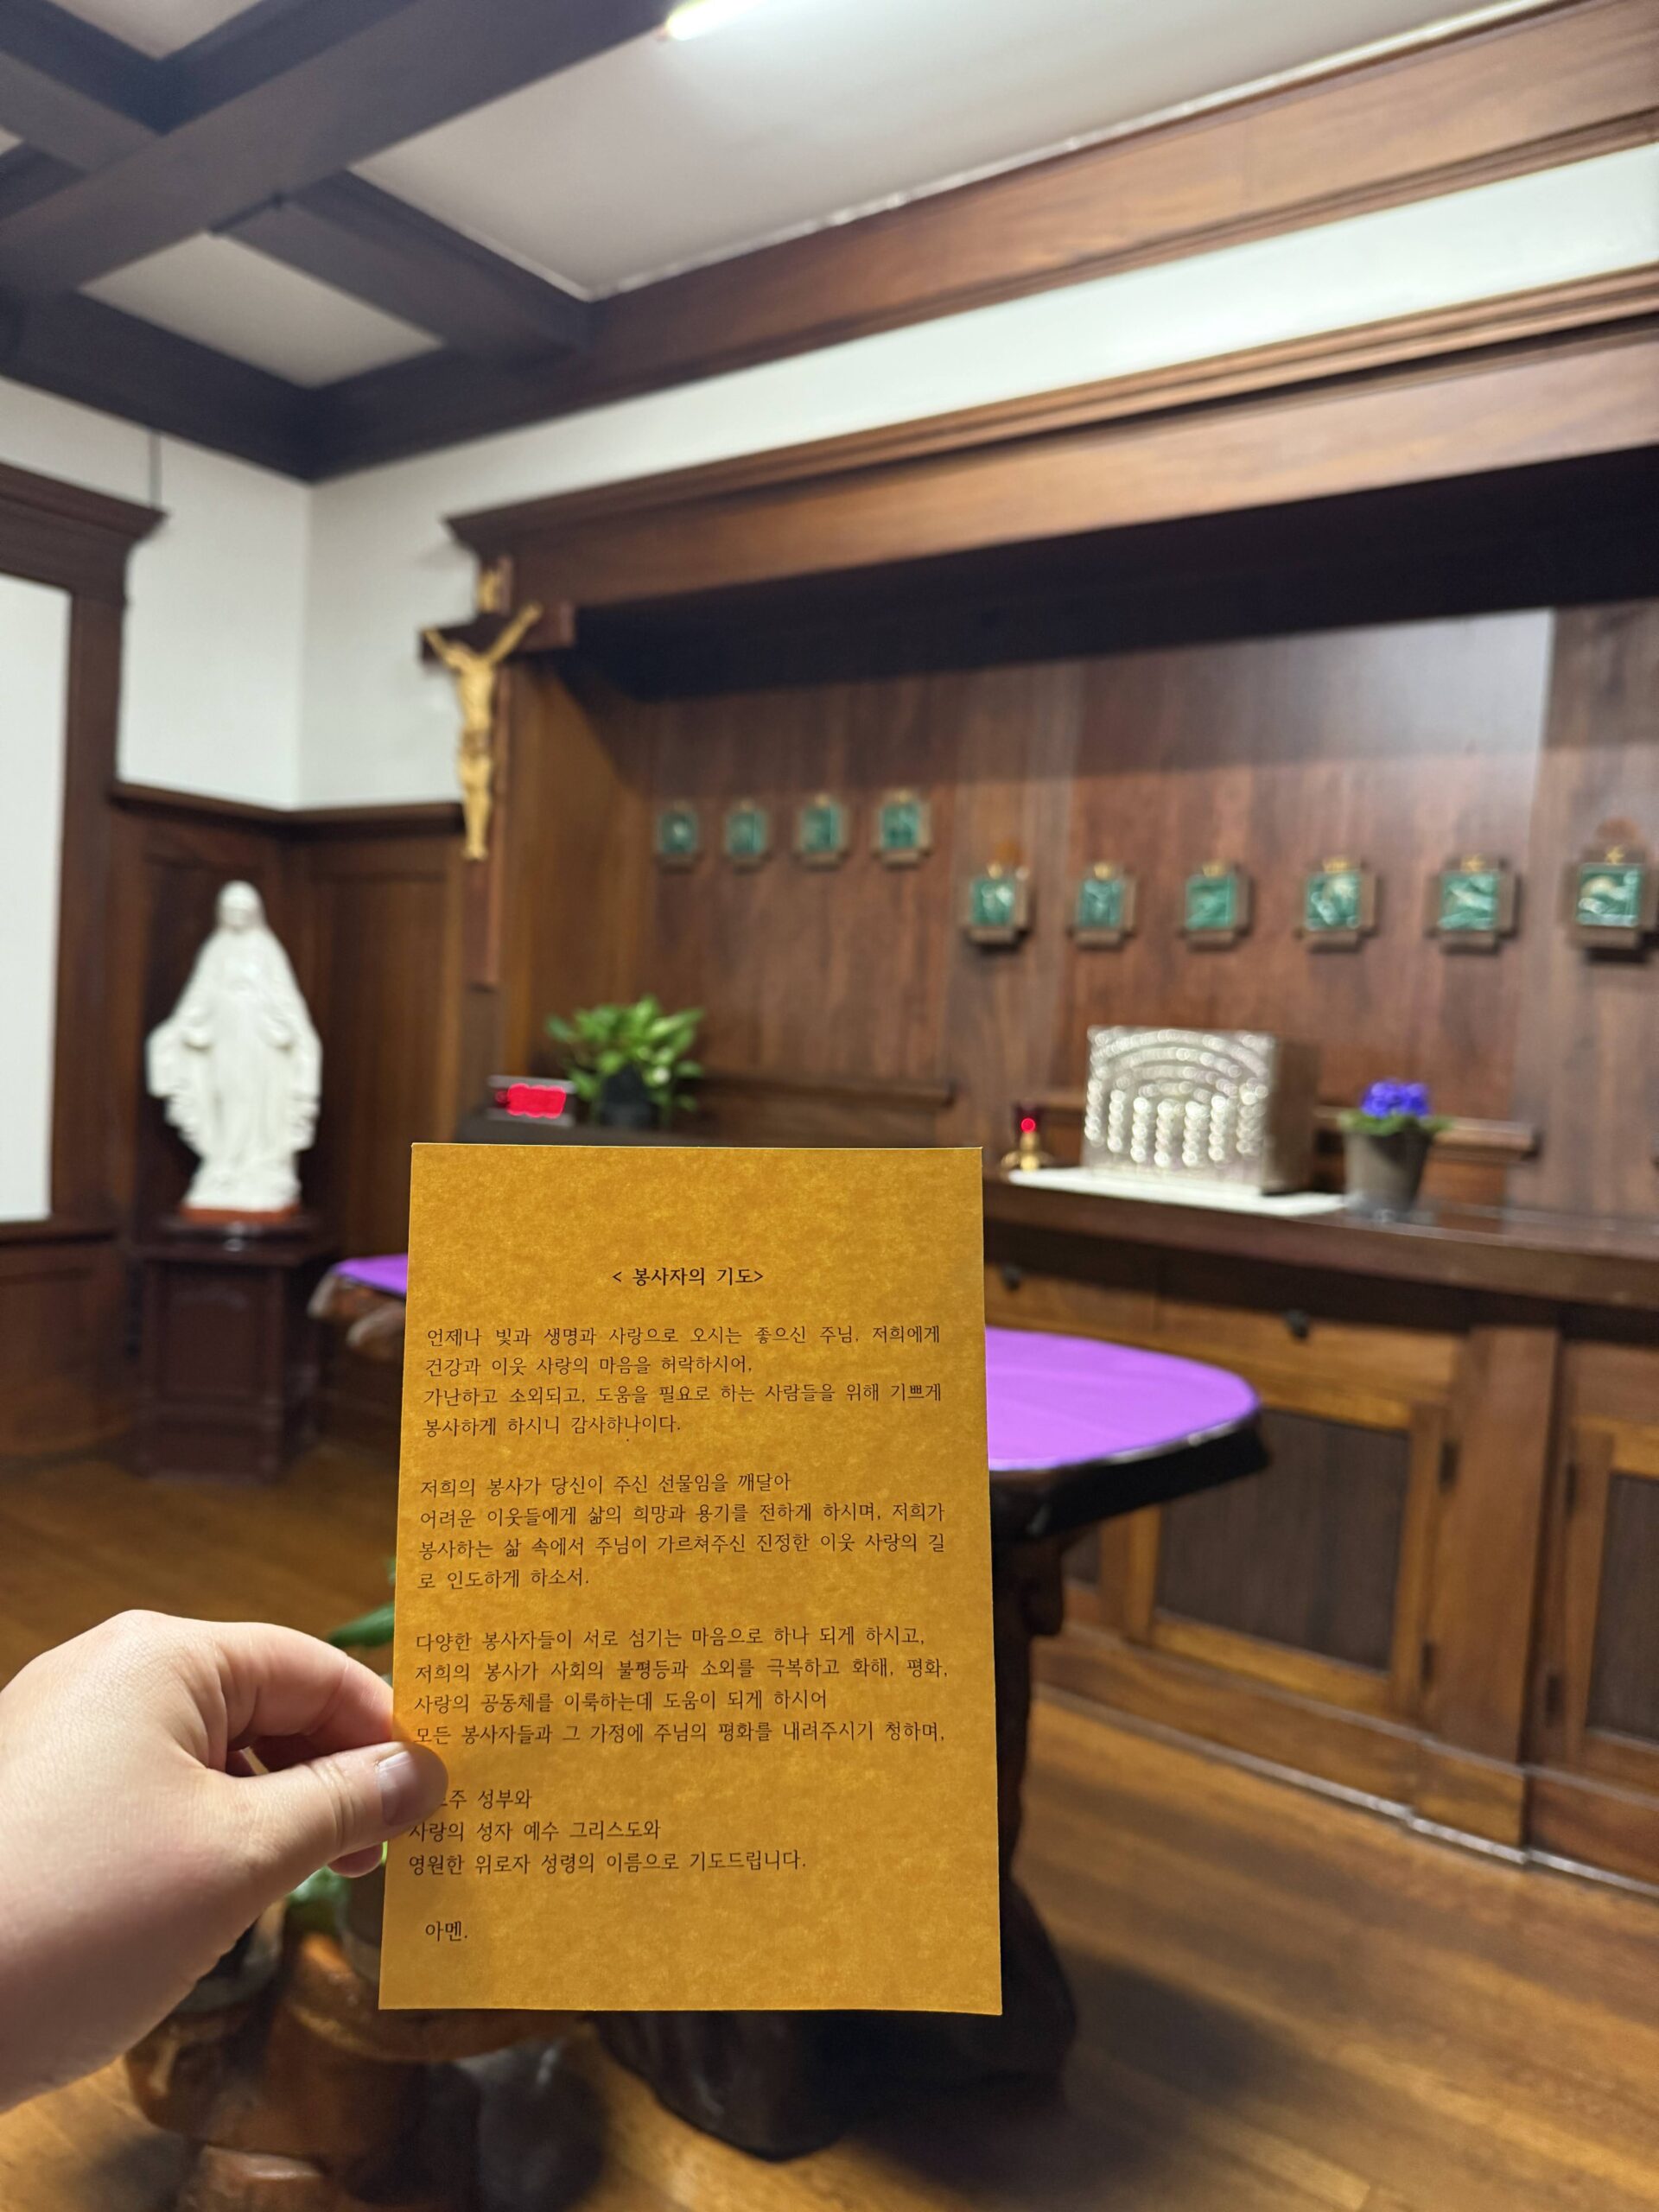 < 봉사자의 기도>
언제나 빛과 생명과 사랑으로 오시는 좋으신 주님, 저희에게
건강과 이웃 사랑의 마음을 허락하시어,
가난하고 소외되고, 도움을 필요로 하는 사람들을 위해 기쁘게
봉사하게 하시니 감사하나이다.
저희의 봉사가 당신이 주신 선물임을 깨달아
어려운 이웃들에게 삶의 희망과 용기를 전하게 하시며, 저희가
봉사하는 삶 속에서 주님이 가르쳐주신 진정한 이웃 사랑의 길
로 인도하게 하소서.
다양한 봉사자들이 서로 섬기는 마음으로 하나 되게 하시고,
저희의 봉사가 사회의 불평등과 소외를 극복하고 화해, 평화,
사랑의 공동체를 이룩하는데 도움이 되게 하시어
모든 봉사자들과 그 가정에 주님의 평화를 내려주시기 청하며,
성부와
사랑의 성자 예수 그리스도와
영원한 위로자 성령의 이름으로 기도드립니다.
아멘.